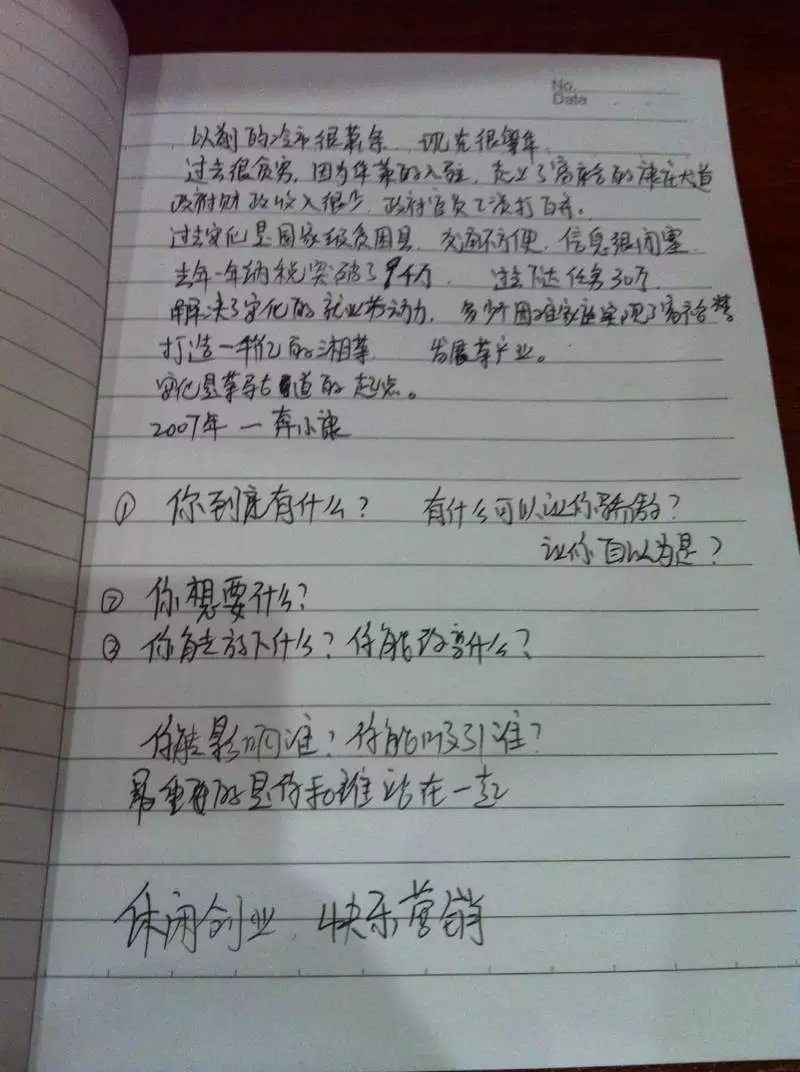 No.
Date
以前的冷市很萧条 现在很繁华
过去很贫穷,因为华莱的入驻,走上了富裕的康庄大道
政府财政收入很少,政府官员工资打白条。
过去安化是国家级贫困县,交通不方便,信息很闭塞
去年一年纳税突破了9千万 下达任务30万
解决了安化的就业劳动力,多少困难家庭实现了富裕梦
打造一千亿的湘莱 发展茶产业。
安化是茶马古道的起点。
2007年 — 奔小康
① 你到底有什么? 有什么可以让你骄傲?
让你自以为是?
② 你想要什么?
③ 你能放下什么?你能改变什么?
你能影响谁?你能吸引谁?
最重要的是你和谁站在一起
休闲创业、快乐营销